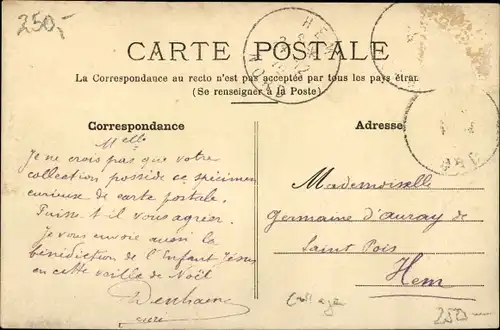 250,-
CARTE POSTALE
La Correspondance au recto n'est pas acceptée par tous les pays étran
(Se renseigner à la Poste)
Correspondance
Melle
Je ne crois pas que votre
collection possède ce spécimen
curieuse de carte postale.
Puisse t-il vous agréer.
Je vous envoie aussi la
bénédiction de l'Enfant Jésus
en cette veille de Noël
curé
Adresse
Mademoiselle
Germaine d'Auray de
Saint Pois
Hem
250-
HEM
NORD